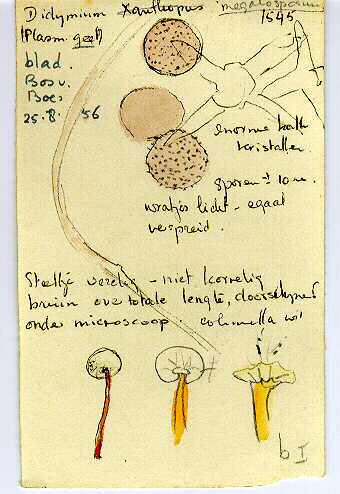 Didymium Xanthopus megalosporum
(Plasm. geel) 1545
blad.
Bosv.
Boes
25.8. 56
enorme kalk
kristallen.
sporen ± 10 u.
wratjes licht - egaal
verspreid.
Steeltje vezelig - niet korrelig
bruin over totale lengte, doorschijnend
onder microscoop columella wit
b I